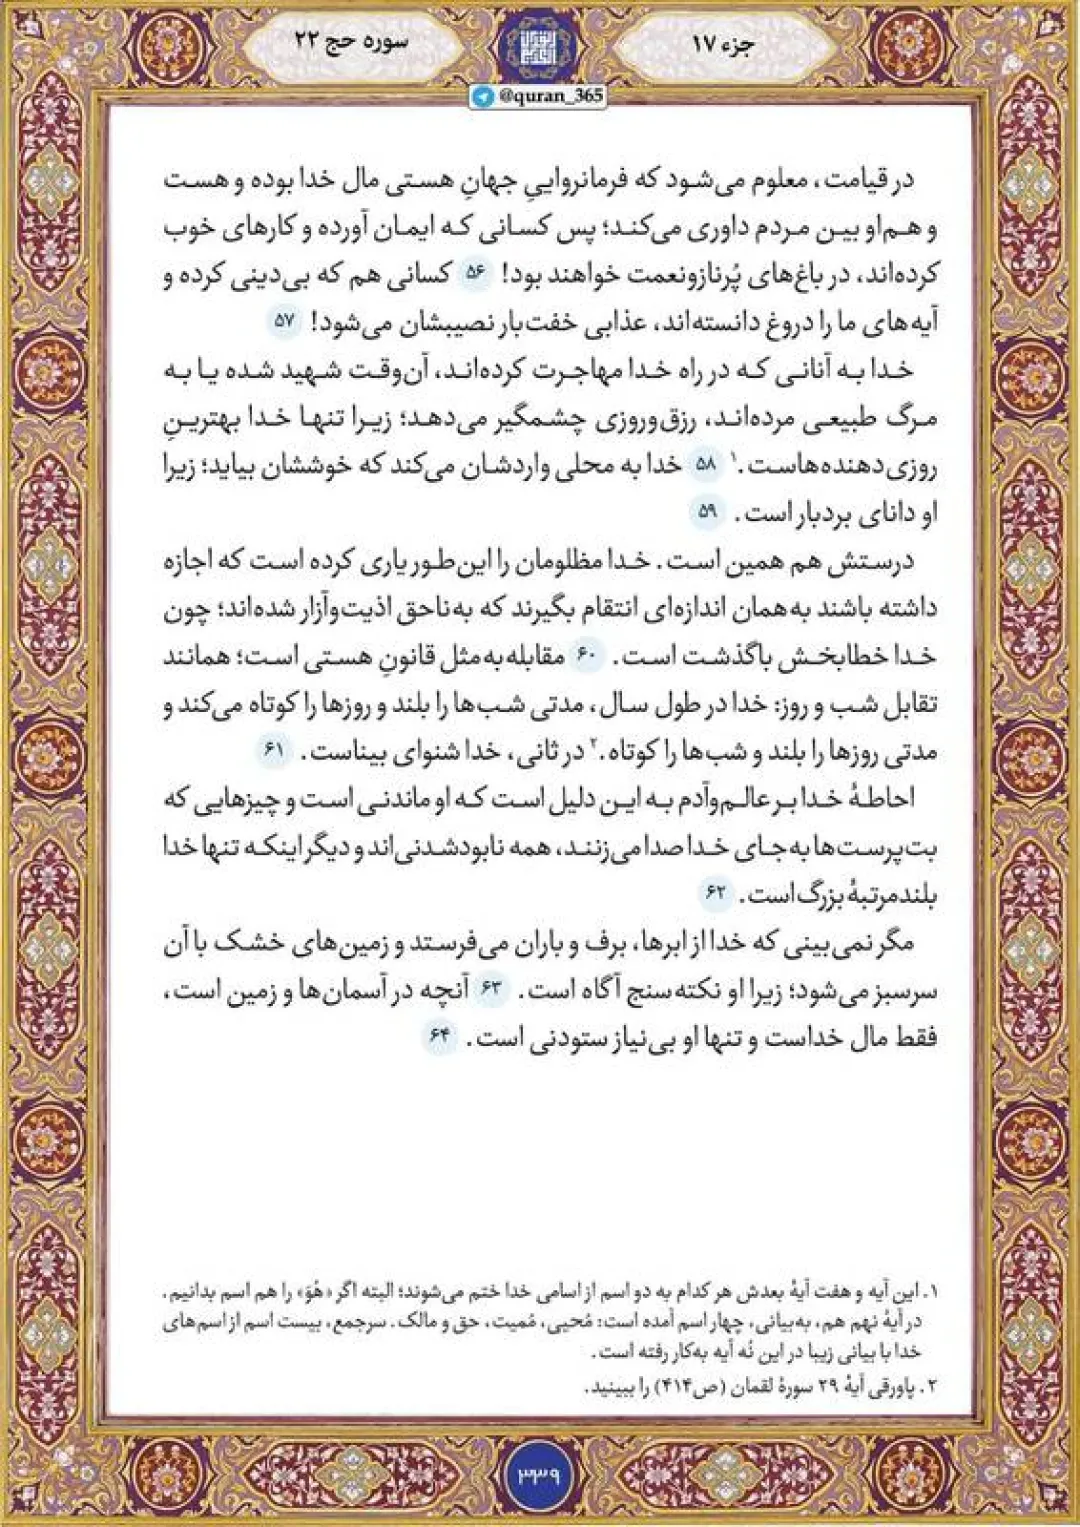 جزء ۱۷
سوره حج ۲۲
@quran_365
در قیامت، معلوم می‌شود که فرمانرواییِ جهانِ هستی مال خدا بوده و هست
و هم‌او بین مردم داوری می‌کند؛ پس کسانی که ایمان آورده و کارهای خوب
کرده‌اند، در باغ‌های پُرنازونعمت خواهند بود! ۵۶ کسانی هم که بی‌دینی کرده و
آیه‌های ما را دروغ دانسته‌اند، عذابی خفت‌بار نصیبشان می‌شود! ۵۷
خدا به آنانی که در راه خدا مهاجرت کرده‌اند، آن‌وقت شهید شده یا به
مرگ طبیعی مرده‌اند، رزق‌وروزی چشمگیر می‌دهد؛ زیرا تنها خدا بهترینِ
روزی‌دهنده‌هاست.۱ ۵۸ خدا به محلی واردشان می‌کند که خوششان بیاید؛ زیرا
او دانای بردبار است. ۵۹
درستش هم همین است. خدا مظلومان را این‌طور یاری کرده است که اجازه
داشته باشند به‌همان اندازه‌ای انتقام بگیرند که به‌ناحق اذیت‌وآزار شده‌اند؛ چون
خدا خطابخش باگذشت است. ۶۰ مقابله‌به‌مثل قانونِ هستی است؛ همانند
تقابل شب و روز: خدا در طول سال، مدتی شب‌ها را بلند و روزها را کوتاه می‌کند و
مدتی روزها را بلند و شب‌ها را کوتاه.۲ در ثانی، خدا شنوای بیناست. ۶۱
احاطهٔ خدا بر عالم‌وآدم به این دلیل است که او ماندنی است و چیزهایی که
بت‌پرست‌ها به‌جای خدا صدا می‌زنند، همه نابودشدنی‌اند و دیگر اینکه تنها خدا
بلندمرتبهٔ بزرگ است. ۶۲
مگر نمی‌بینی که خدا از ابرها، برف و باران می‌فرستد و زمین‌های خشک با آن
سرسبز می‌شود؛ زیرا او نکته‌سنج آگاه است. ۶۳ آنچه در آسمان‌ها و زمین است،
فقط مال خداست و تنها او بی‌نیاز ستودنی است. ۶۴
۱. این آیه و هفت آیهٔ بعدش هر کدام به دو اسم از اسامی خدا ختم می‌شوند؛ البته اگر «هُوَ» را هم اسم بدانیم.
در آیهٔ نهم هم، به‌بیانی، چهار اسم آمده است: مُحیی، مُمیت، حق و مالک. سرجمع، بیست اسم از اسم‌های
خدا با بیانی زیبا در این نُه آیه به‌کار رفته است.
۲. پاورقی آیهٔ ۲۹ سورهٔ لقمان (ص۴۱۴) را ببینید.
۳۳۹